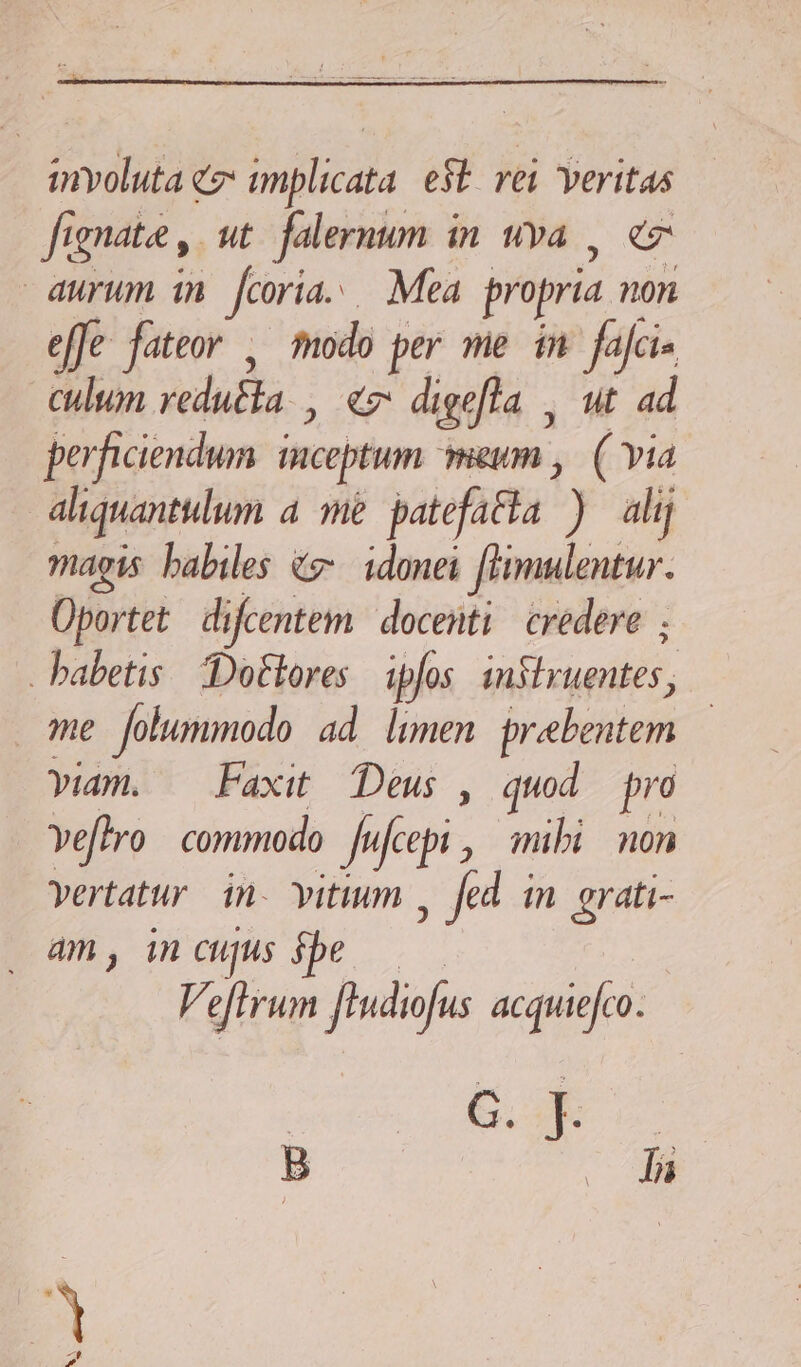 involuta & implicata eſt rei veritas
ſignatæ, ut falernum in uva, &
aurum in ſcoria. Mea propria non
eſſe fateor, modo per me in faſci-
culum reducta, & digeſta, ut ad
perficiendum inceptum meum, (via
aliquantulum a me patefacta) alij
magis habiles & idonei ſtimulentur.
Oportet diſcentem docenti credere;
habetis Doctores ipſos inſtruentes,
me ſolummodo ad limen præbentem
viam. Faxit Deus, quod pro
veſtro commodo ſuſcepi, mihi non
vertatur in vitium, ſed in grati-
am, in cujus ſpe
Veſtrum ſtudioſus acquieſco.
G. J.
B In